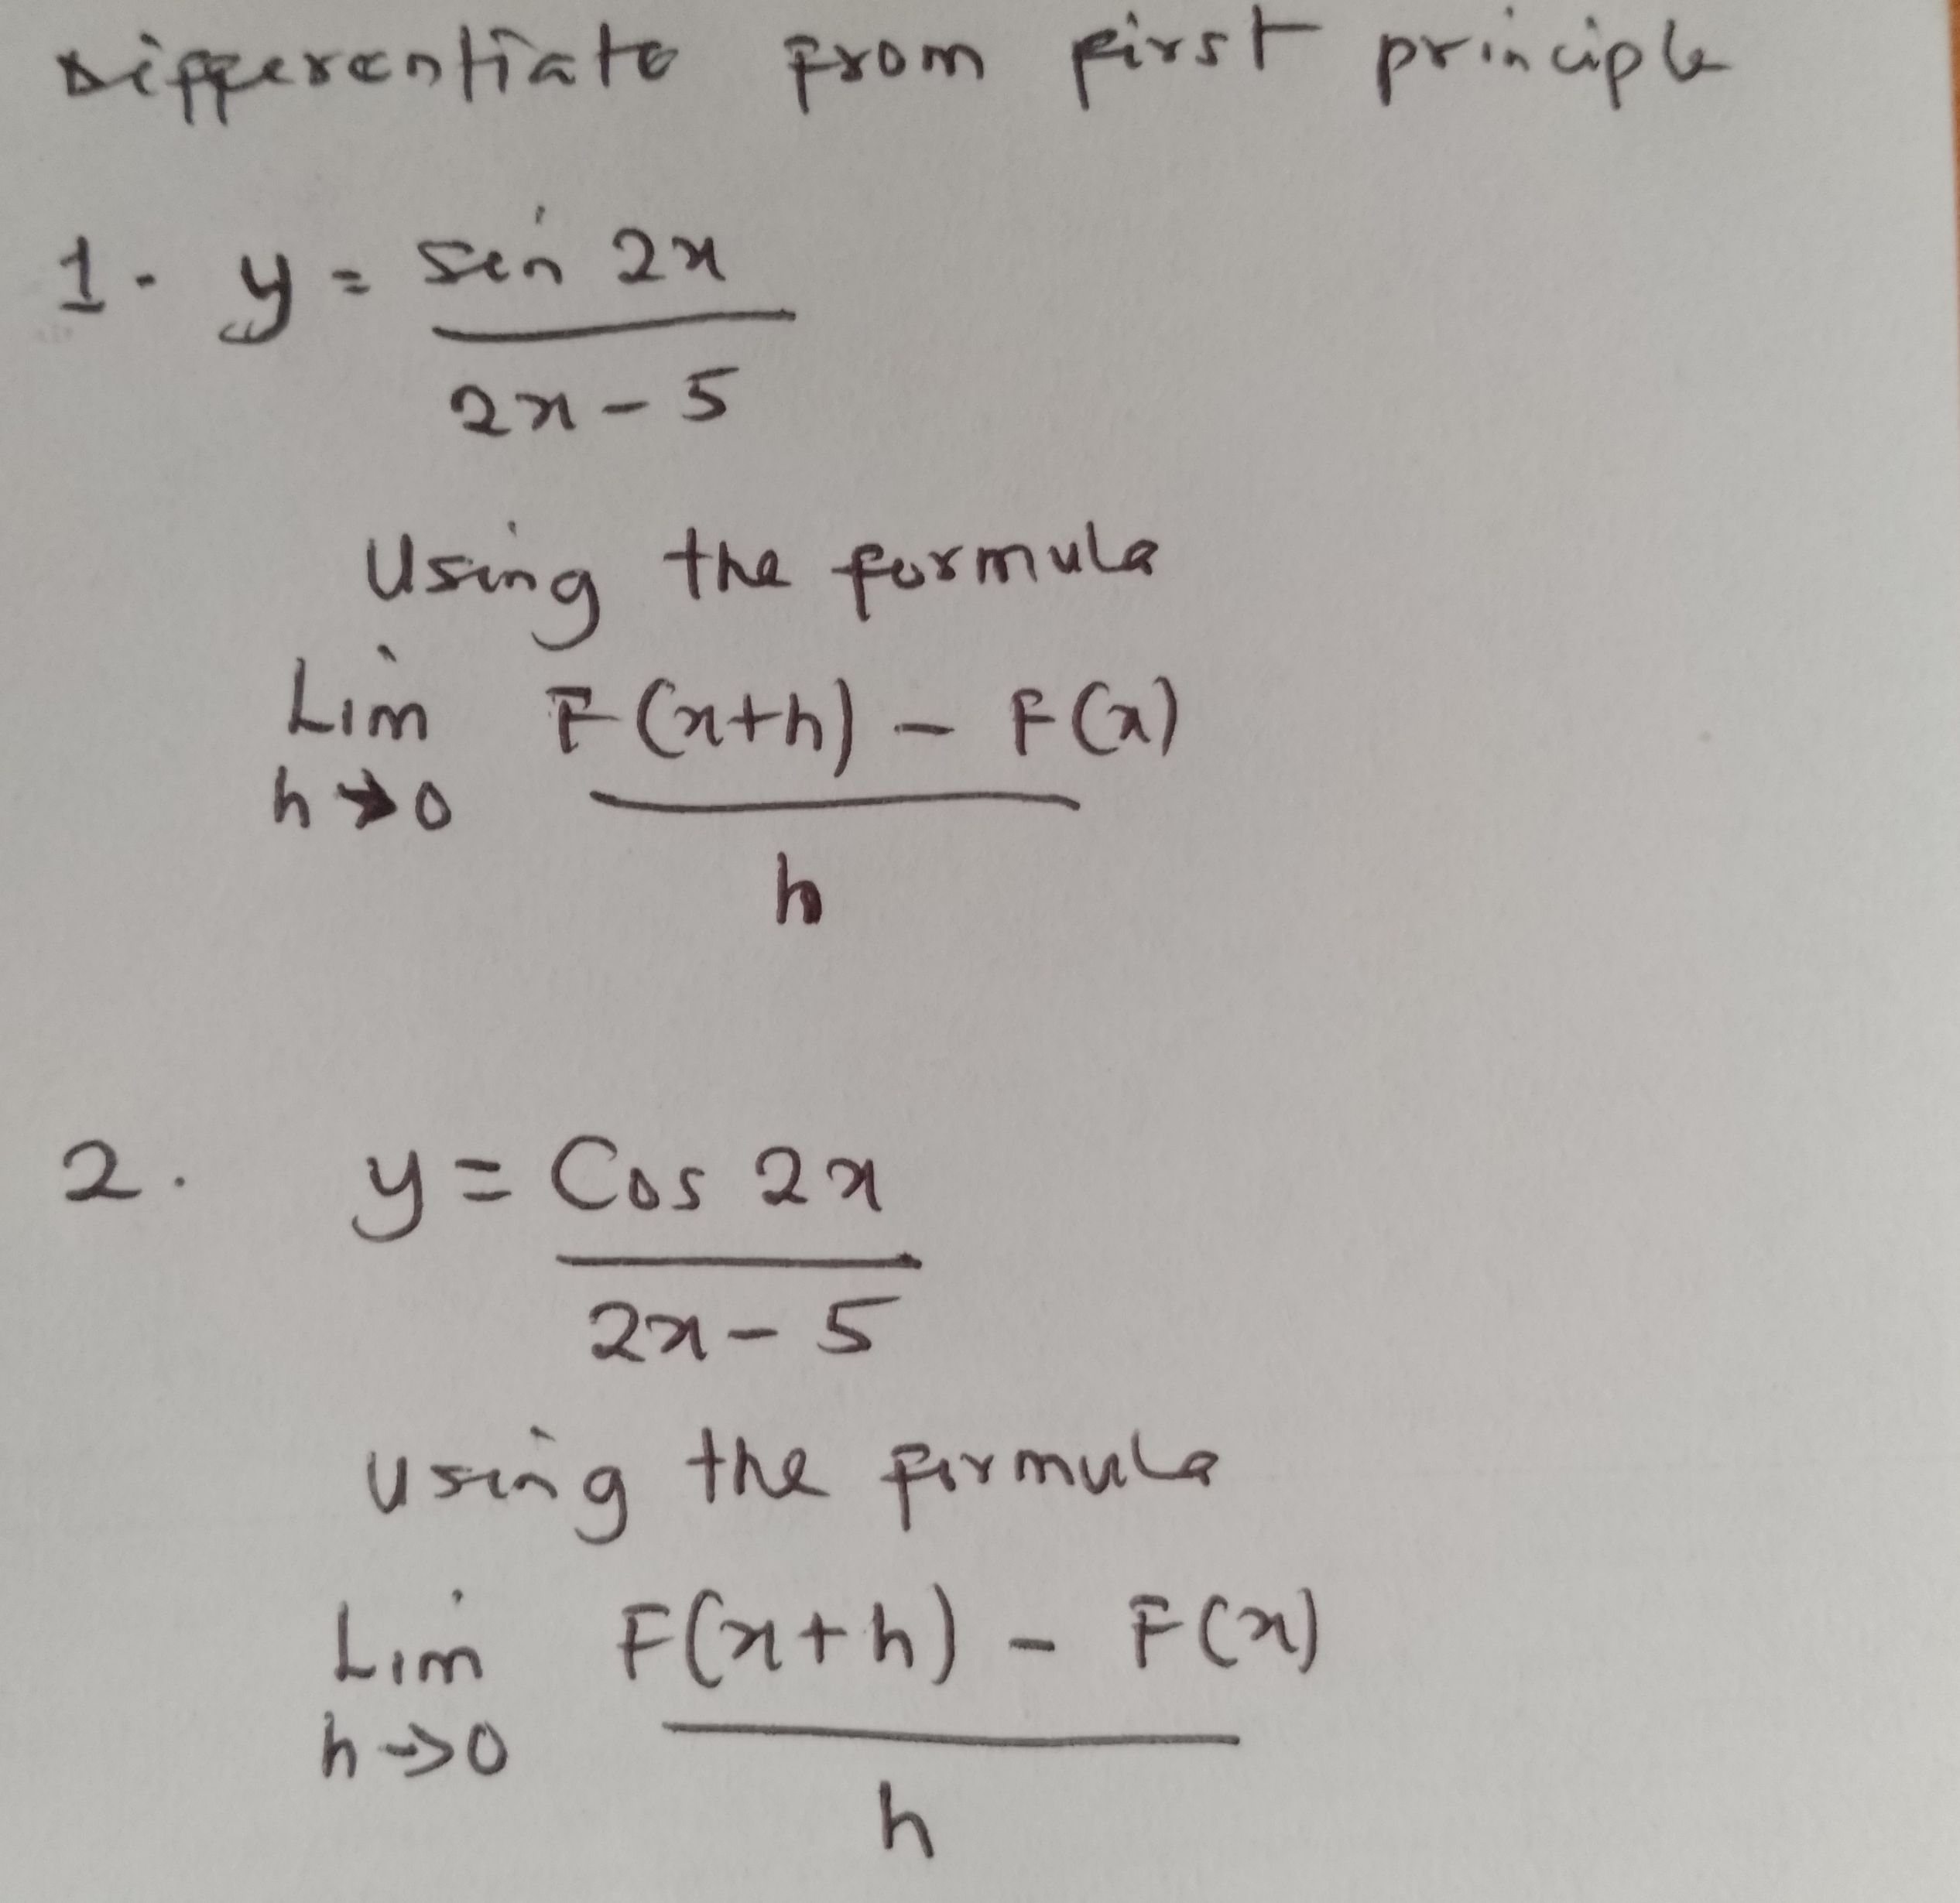 Differentiate from first principle
1. y = sin 2x
2x - 5
Using the formula
Lim F(x+h) - F(x)
h→0
h
2. y = Cos 2x
2x - 5
using the formula
Lim F(x+h) - F(x)
h→0
h